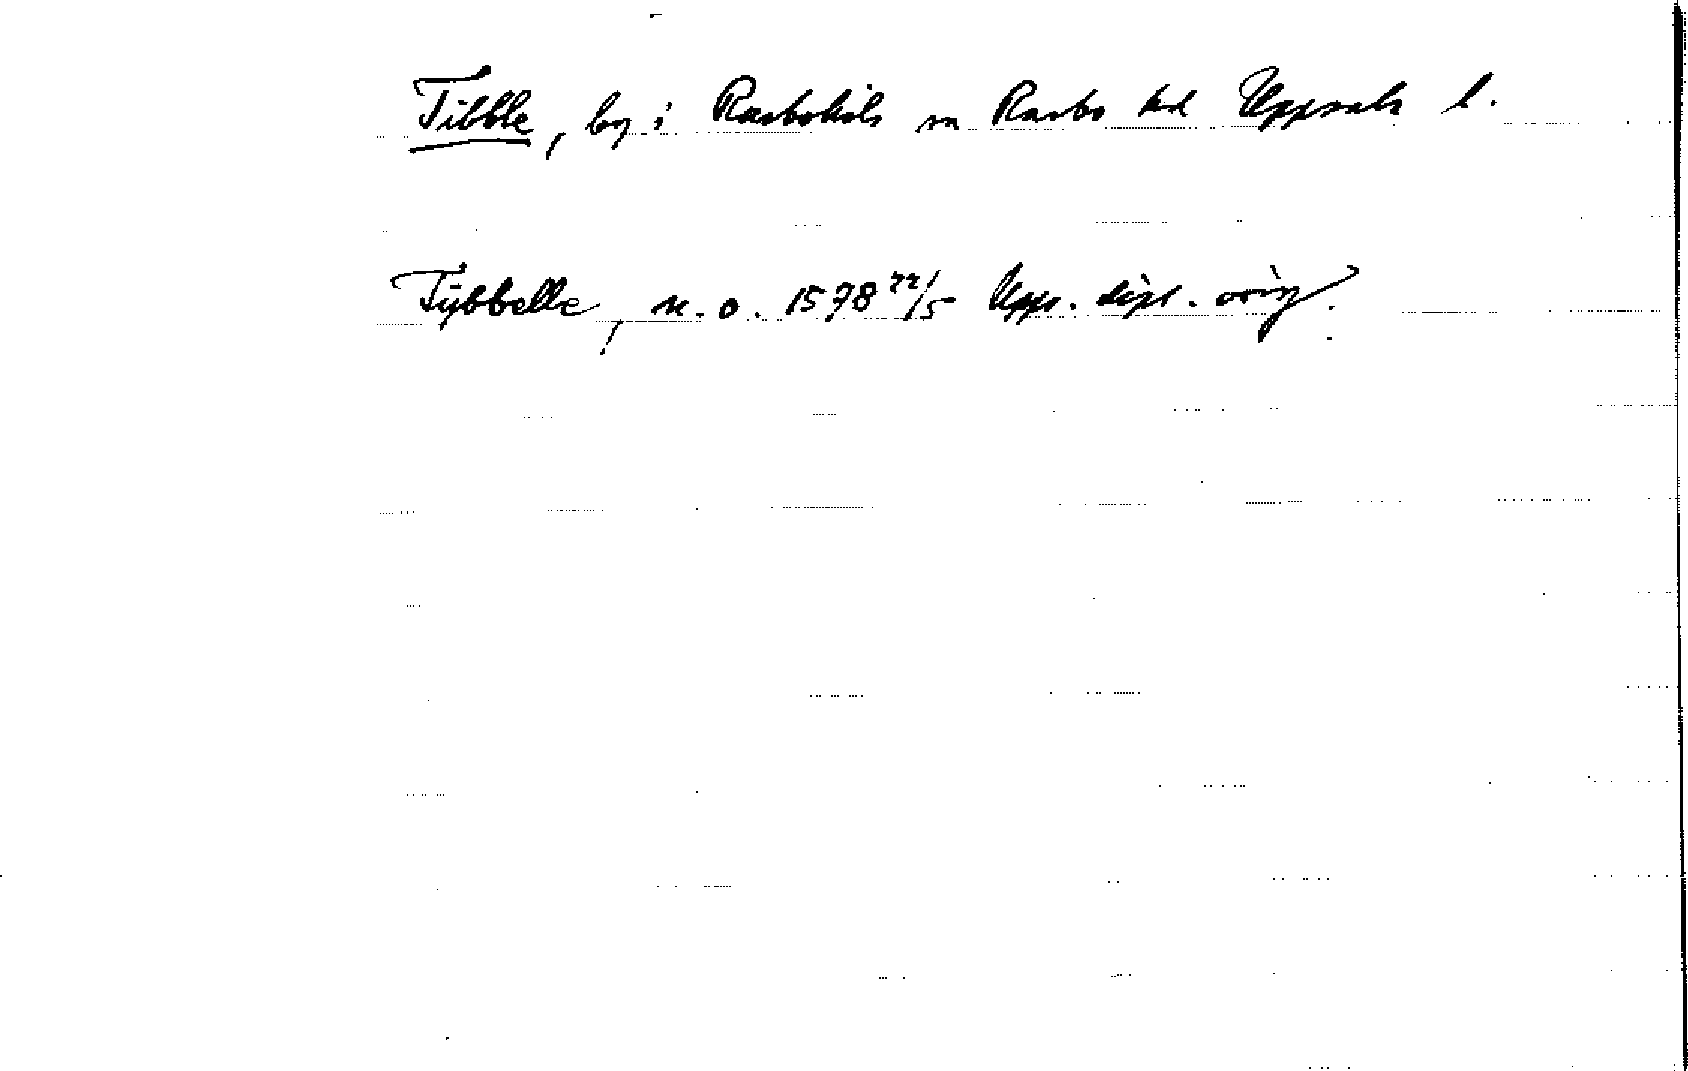 Tibble, by i Rasbokils sn Rasbo hd Uppsala l.
Tÿbbelle, u. o. 1578 22/5 Upps. dipl. orig.